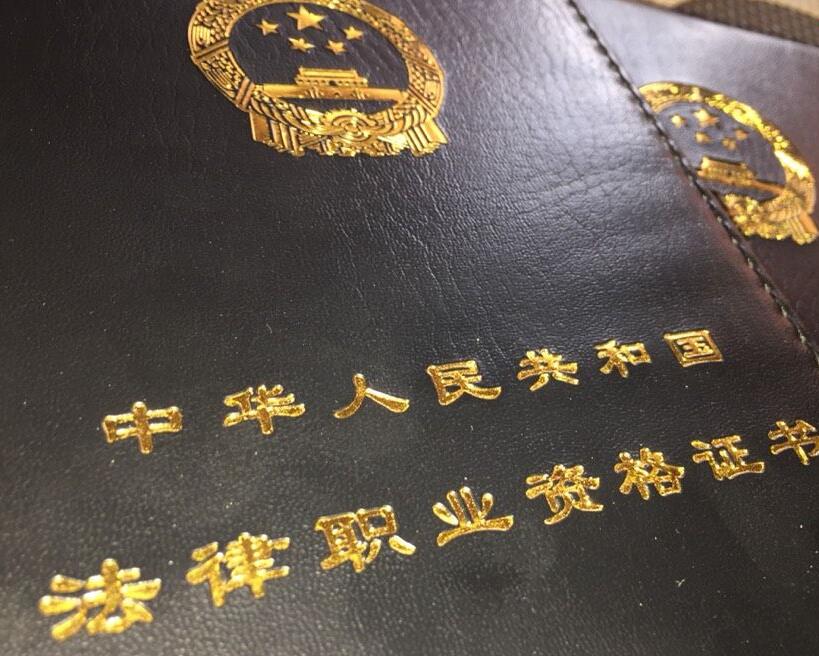 中华人民共和国
法律职业资格证书